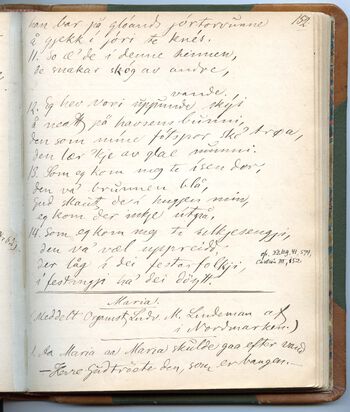 152.
han bar på gloands jortorvunne
å gjekk i jori te knés.
11. So æ' de i denne heimen,
so snakar skóg av andre,
vande.
12. Eg hev vori uppunde skyi
å neatt på havsens bunni,
den som mine fotspor ska' trøa,
den lær 'kje av glae munni.
13. Som eg kom meg te isen dør,
den va' brunnen blå,
Gud skaut de i hugjen min,
eg kom der inkje utpå.
14. Som eg kom meg te silkesengji,
den va' væl uppreidd,
der låg i dei
i festningji ha' dei döytt.
Maria.
(Meddelt Organist Ludv. M. Lindeman af
i Nordmarken.)
1. Aa Maria aa Maria skulde gaa efter vand
– Herre Gud trøste den, som er bangen. –